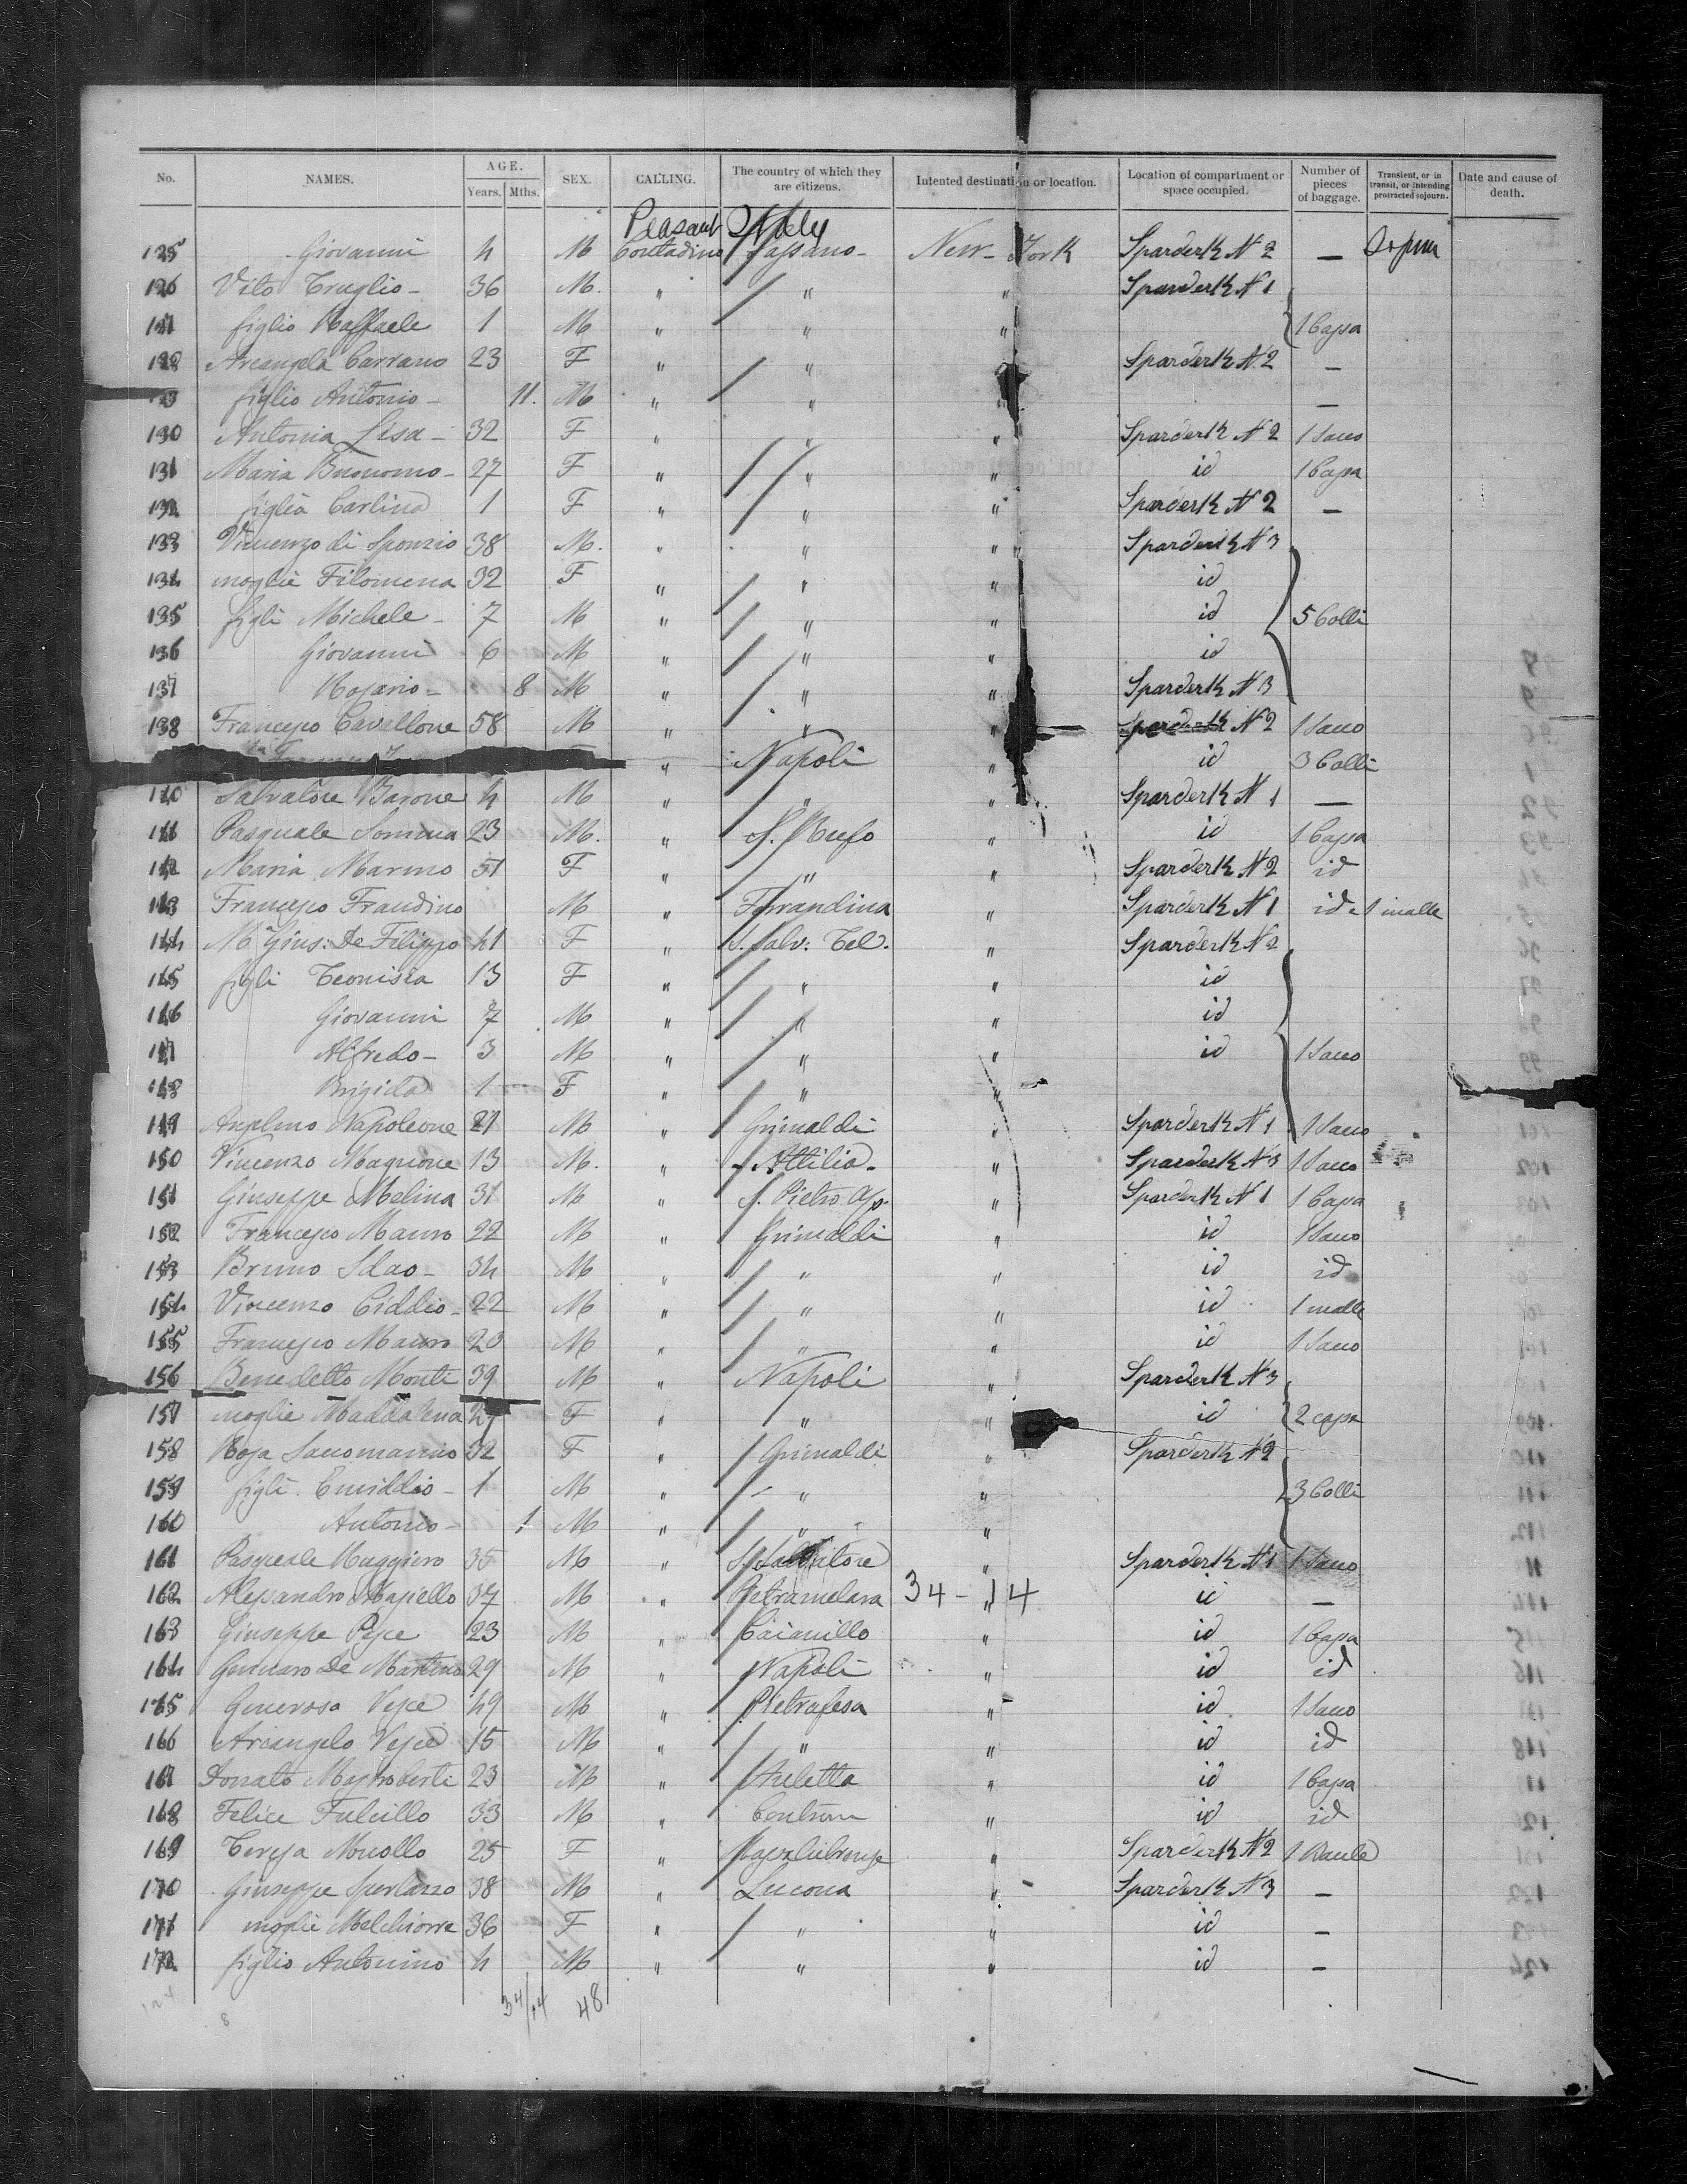 No. NAMES. AGE. Years. Mths. SEX. CALLING. The country of which they are citizens. Intented destination or location. Location of compartment or space occupied. Number of pieces of baggage. Transient, or in transit, or intending protracted sojourn. Date and cause of death.
Peasant Italy
125 Giovanni 4 M Contadino Sassano New-York Sparderk N 2 —
126 Vito Truglio 36 M. " " " Sparderk N 1
127 figlio Raffaele 1 M " " " 1 Cassa
128 Arcangela Carrano 23 F " " Sparderk N 2 —
129 figlio Antonio 11. M " " " —
130 Antonia Lisa 32 F " " " Sparderk N 2 1 Sacco
131 Maria Buonomo 27 F " " " id 1 Cassa
132 figlia Carlina 1 F " " " Sparderk N 2 —
133 Vincenzo di Sponzio 38 M. " " " Sparderk N 3
134 moglie Filomena 32 F " " " id
135 figli Michele 7 M " " " id 5 Colli
136 Giovanni 6 M " " " id
137 Rosario 8 M " " " Sparderk N 3
138 Francesco Cavallone 58 M " " " Sparderk N 2 1 Sacco
" Napoli " id 3 Colli
140 Salvatore Barone 4 M " " " Sparderk N 1 —
141 Pasquale Somma 23 M. " S. Rufo " id 1 Cassa
142 Maria Marino 51 F " " " Sparderk N 2 id
143 Francesco Fraudino M " Ferrandina " Sparderk N 1 id 1 malle
144 Ma Gius: De Filippo 41 F " S. Salv: Tel. " Sparderk N 2
145 figli Teonista 13 F " " " id
146 Giovanni 7 M " " " id
147 Alfredo 3 M " " " id 1 Sacco
148 Brigida 1 F " " "
149 Anselmo Napoleone 21 M " Grimaldi " Sparderk N 1 1 Sacco
150 Vincenzo Magnone 13 M. " Attilia " Sparderk N 3 1 Sacco
151 Giuseppe Melina 31 M " S. Pietro Ap. " Sparderk N 1 1 Cassa
152 Francesco Mauro 22 M " Grimaldi " id 1 Sacco
153 Bruno Sdao 34 M " " " id id
154 Vincenzo Ciddio 22 M " " " id 1 malle
155 Francesco Mauro 20 M " " " id 1 Sacco
156 Benedetto Monti 39 M " Napoli " Sparderk N 3
157 moglie Maddalena F " " " id 2 casse
158 Rosa Saccomanno 32 F " Grimaldi " Sparderk N 2
159 figli Emiddio 1 M " " " 3 Colli
160 Antonio 1 M " " "
161 Pasquale Ruggiero 35 M " S. Salvatore " Sparderk N 1 1 Sacco
162 Alessandro Masiello 37 M " Pietramelara 34 - 14 " id —
163 Giuseppe Pesce 23 M " Caianillo " id 1 Cassa
164 Gennaro De Martino 29 M " Napoli " id id
165 Generoso Vesce 49 M " Pietrafesa " id 1 Sacco
166 Arcangelo Vesce 15 M " " " id id
167 Donato Mastroberti 23 M " Auletta " id 1 Cassa
168 Felice Fulcillo 33 M " " id id
169 Teresa Muollo 25 F " " Sparderk N 2 1 Baule
170 Giuseppe Sperlazzo 38 M " Lucona " Sparderk N 3 —
171 moglie Melchiorra 36 F " " " id —
172 figlio Antonino 4 M " " " id —
34/14 48
8